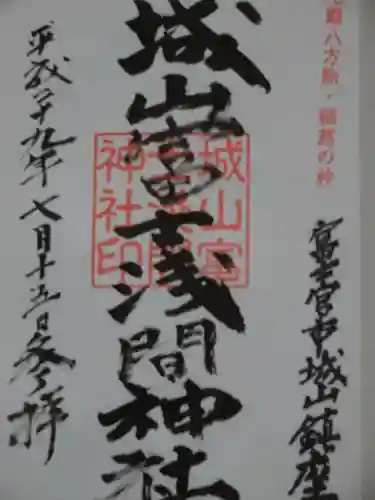 八方除・稲荷の神
富士宮市城山鎮座
城山富士浅間神社
城山富
士浅間
神社印
平成二十九年七月十五日参拝